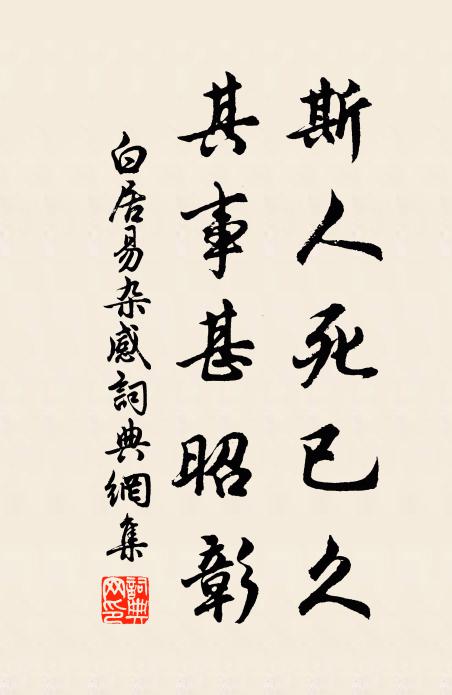 斯人死已久
其事甚昭彰
白居易杂感詞典網集
詞典
网印